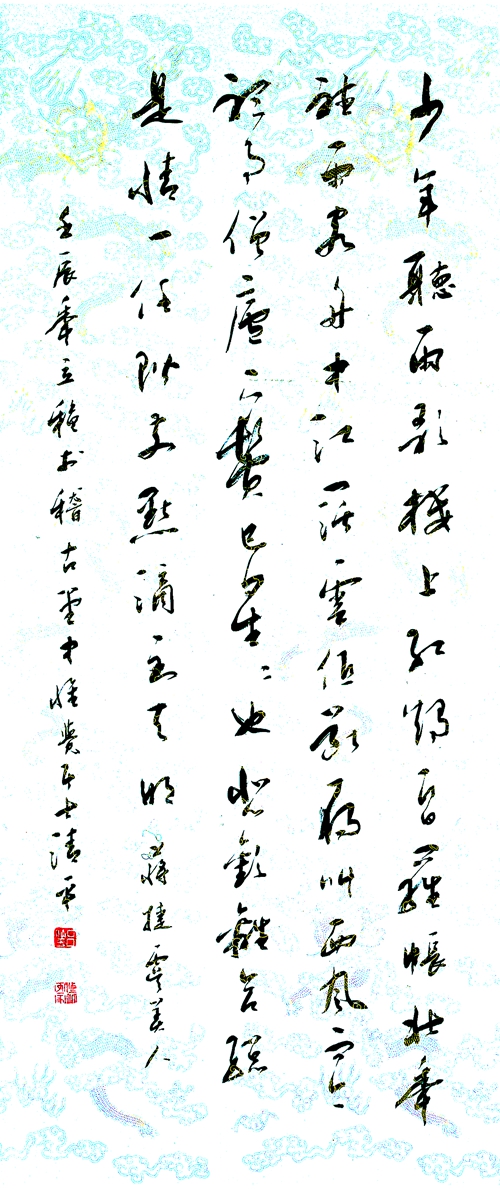 少年聽雨歌樓上紅燭昏羅帳壯年
聽雨客舟中江闊雲低斷雁叫西風而今
聽雨僧廬下鬢已星〻也悲歡離合總
是情一任階前點滴至天明 蔣捷虞美人
壬辰年立穐於稽古堂中覺居士清平